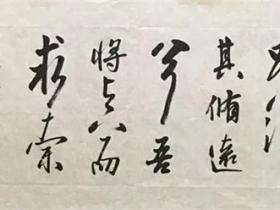 其脩遠
兮吾
将上下而
求索